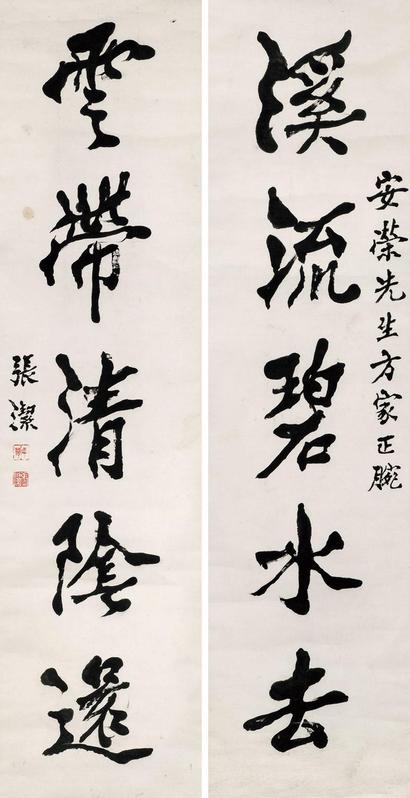 安榮先生方家正腕
溪流碧水去
雲帶清陰還
張潔